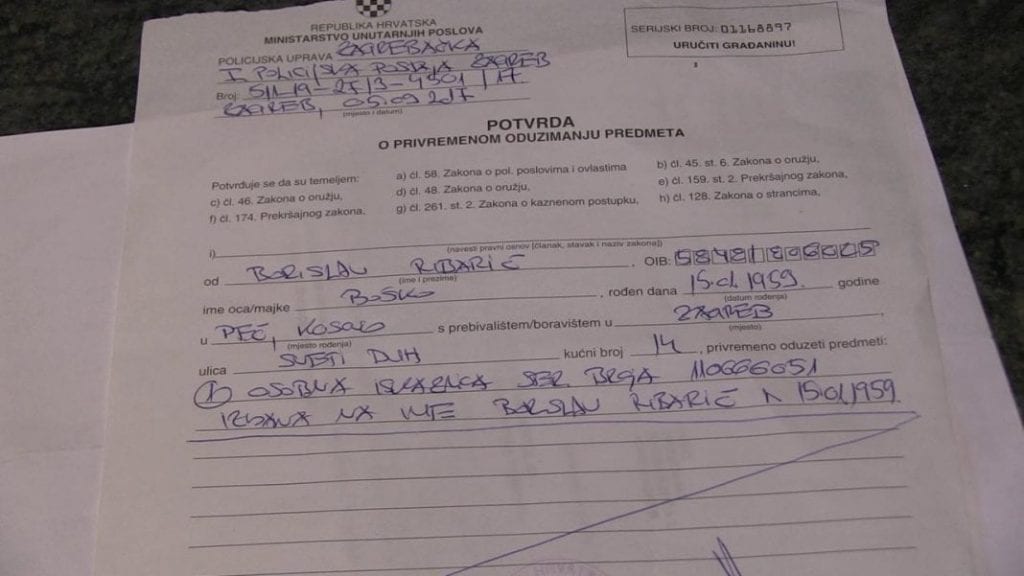 REPUBLIKA HRVATSKA
MINISTARSTVO UNUTARNJIH POSLOVA
POLICIJSKA UPRAVA ZAGREBAČKA
I POLICIJSKA POSTAJA ZAGREB
Broj: 511-19-27/3- /17
ZAGREB, 05.09 2017
(mjesto i datum)
SERIJSKI BROJ: 01168897
URUČITI GRAĐANINU!
POTVRDA
O PRIVREMENOM ODUZIMANJU PREDMETA
Potvrđuje se da su temeljem: a) čl. 58. Zakona o pol. poslovima i ovlastima b) čl. 45. st. 6. Zakona o oružju,
c) čl. 46. Zakona o oružju, d) čl. 48. Zakona o oružju, e) čl. 159. st. 2. Prekršajnog zakona,
f) čl. 174. Prekršajnog zakona, g) čl. 261. st. 2. Zakona o kaznenom postupku, h) čl. 128. Zakona o strancima,
i)
(navesti pravni osnov [članak, stavak i naziv zakona])
od BORISLAV RIBARIĆ , OIB:
(ime i prezime)
ime oca/majke BOŠKO , rođen dana 15.01.1959. godine
(datum rođenja)
u PEĆ, KOSOVO s prebivalištem/boravištem u ZAGREB ,
(mjesto rođenja) (mjesto)
ulica SVETI DUH kućni broj 14 , privremeno oduzeti predmeti:
1 OSOBNA ISKAZNICA SER BROJA 110666051
IZDANA NA IME BORISLAV RIBARIĆ 15.01.1959.